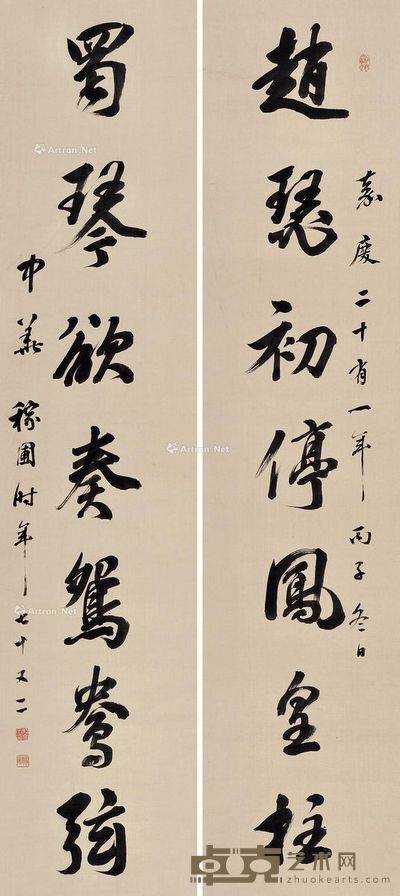 趙瑟初停鳳皇柱
嘉慶二十有一年丙子冬日
蜀琴欲奏鴛鴦弦
中義稼圃時年七十又二
Artron.Net
Artron.Net
Artron.Net
Artron.Net
Artron.Net
卓克艺术网
zhuokearts.com